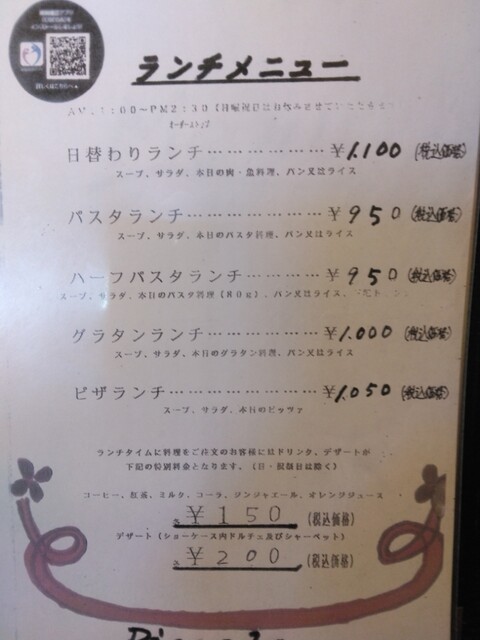 ランチメニュー
1:00～PM2:30
オーダーストップ
日替わりランチ………………￥1.100 (税込価格)
スープ、サラダ、本日の肉・魚料理、パン又はライス
パスタランチ………………￥950 (税込価格)
スープ、サラダ、本日のパスタ料理、パン又はライス
ハーフパスタランチ……………￥950 (税込価格)
スープ、サラダ、本日のパスタ料理(80g)、パン又はライス、
グラタンランチ………………￥1.000 (税込価格)
スープ、サラダ、本日のグラタン料理、パン又はライス
ピザランチ…………………￥1.050 (税込価格)
スープ、サラダ、本日のピッツァ
ランチタイムに料理をご注文のお客様にはドリンク、デザートが
下記の特別料金となります。(日・祝祭日は除く)
コーヒー、紅茶、ミルク、コーラ、ジンジャエール、オレンジジュース
￥150 (税込価格)
デザート(ショーケース内ドルチェ及びシャーベット)
￥200 (税込価格)